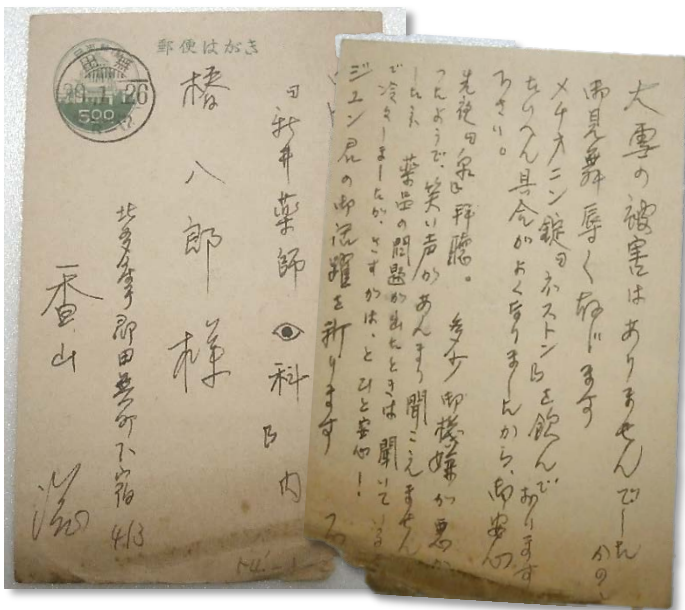 郵便はがき
田無
29.1.26
5 00
新井薬師👁科医内
椿八郎様
北多摩郡田無町下宿413
香山滋
大雪の被害はありませんでしたか
御見舞辱く存じます
メチオニン錠
ネストンを飲んでおります
たいへん具合がよくなりましたから、御安心
下さい。
先夜
拝聴。
多少御機嫌が悪か
ったようで、笑い声があんまり聞こえません
でしたネ
薬品の問題が出たときは聞いてい
て冷々しましたが、さすがは、とひと安心!
ジュン君の御活躍を祈ります